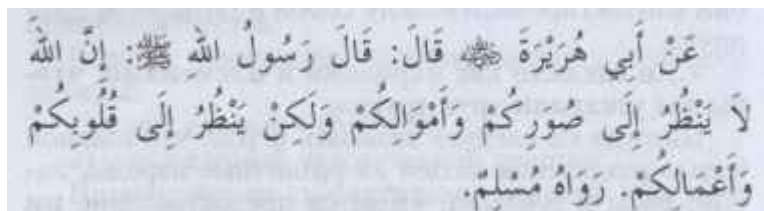 عَنْ أَبِي هُرَيْرَةَ ﷺ قَالَ: قَالَ رَسُولُ اللهِ ﷺ: إِنَّ اللهَ
لاَ يَنْظُرُ إِلَى صُورِكُمْ وَأَمْوَالِكُمْ وَلَكِنْ يَنْظُرُ إِلَى قُلُوبِكُمْ
وَأَعْمَالِكُمْ. رَوَاهُ مُسْلِمٌ.